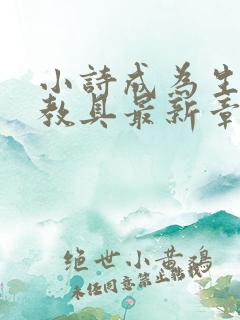 小詩成為生
教具最新章
绝世小黄鸡
未经同意禁止转载